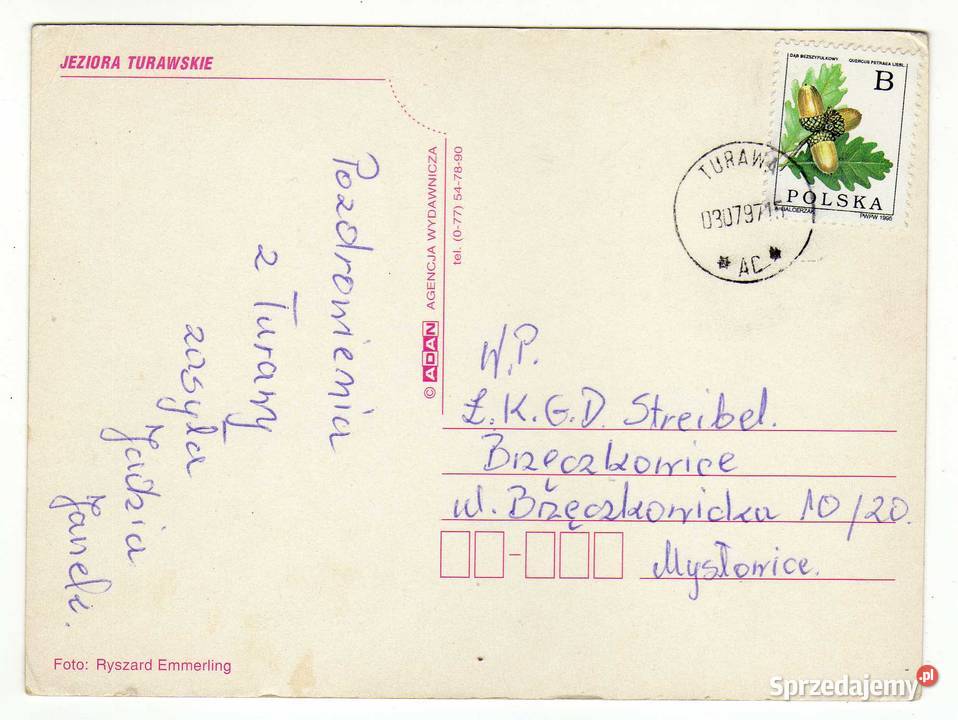 JEZIORA TURAWSKIE
Pozdrowienia
z Turawy
zasyła
Jadzia
© ADAN AGENCJA WYDAWNICZA
tel. (0-77) 54-78-90
DĄB BEZSZYPUŁKOWY QUERCUS PETRAEA LIEBL.
B
POLSKA
PWPW 1995
TURAWA
03079715
* AC *
W.P.
Ł.K.G.D. Streibel.
Brzęczkowice
ul. Brzęczkowicka 10/20.
Mysłowice.
Foto: Ryszard Emmerling
Sprzedajemy.pl